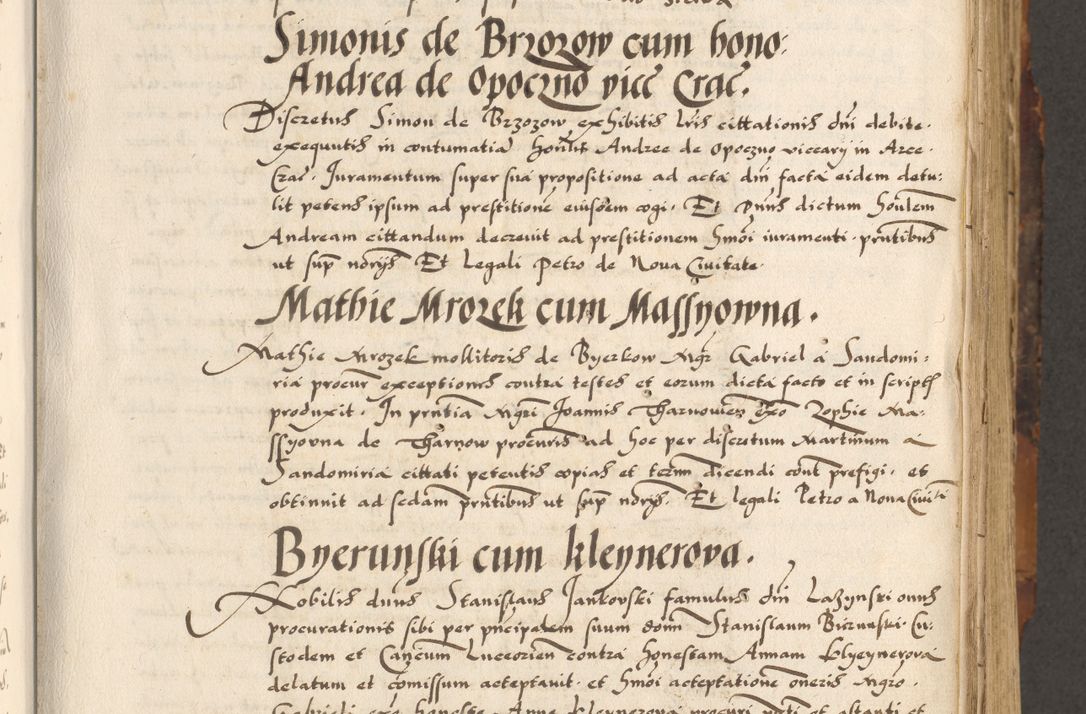 Simonis de Brzozow cum hono:
Andrea de Opoczno vice Crac.
Discretus Simon de Brzozow exhibitis lris cittationis dni debite
exequutis in contumatia honlis Andree de Opoczno viccary in Arce
Crac. Juramentum super sua propositione ad acta dni facta eidem detu:
lit petens ipsum ad prestitione eiusdem cogi. Et Dnus dictum honlem
Andream cittandum decrevit ad prestitionem hmoi iuramenti. pntibus
ut sup ndrys Et Legali Petro de Nova Civitate.
Mathie Mrozek cum Massyowna.
Mathie Mrozek mollitoris de Byerkow Mgr Gabriel a Sandomi:
ria procur exceptiones contra testes et eorum dicta facto et in scriptis
produxit. In pntia Mgri Joannis Tharnowien exo Zophie Ma:
ssyovna de Tharnow procuris ad hoc per discretum Martinum a
Sandomiria cittati petentis copias et term dicendi cont prefigi. et
obtinuit ad sedam pntibus ut sup ndrys. Et legali Petro a Nova Civita
Byerunski cum kleynerova.
Nobilis dnus Stanislaus Jankovski famulus dni Lazynski onus
procurationis sibi per pncipalem suum dom Stanislaum Birunski. Cu:
stodem et Cancum Luceorien contra honestam Annam klyeynerova
delatum et comissum acceptavit. et hmoi acceptatione oneris Mgro.
Gabrieli exo honeste Anne kleynerova procuri